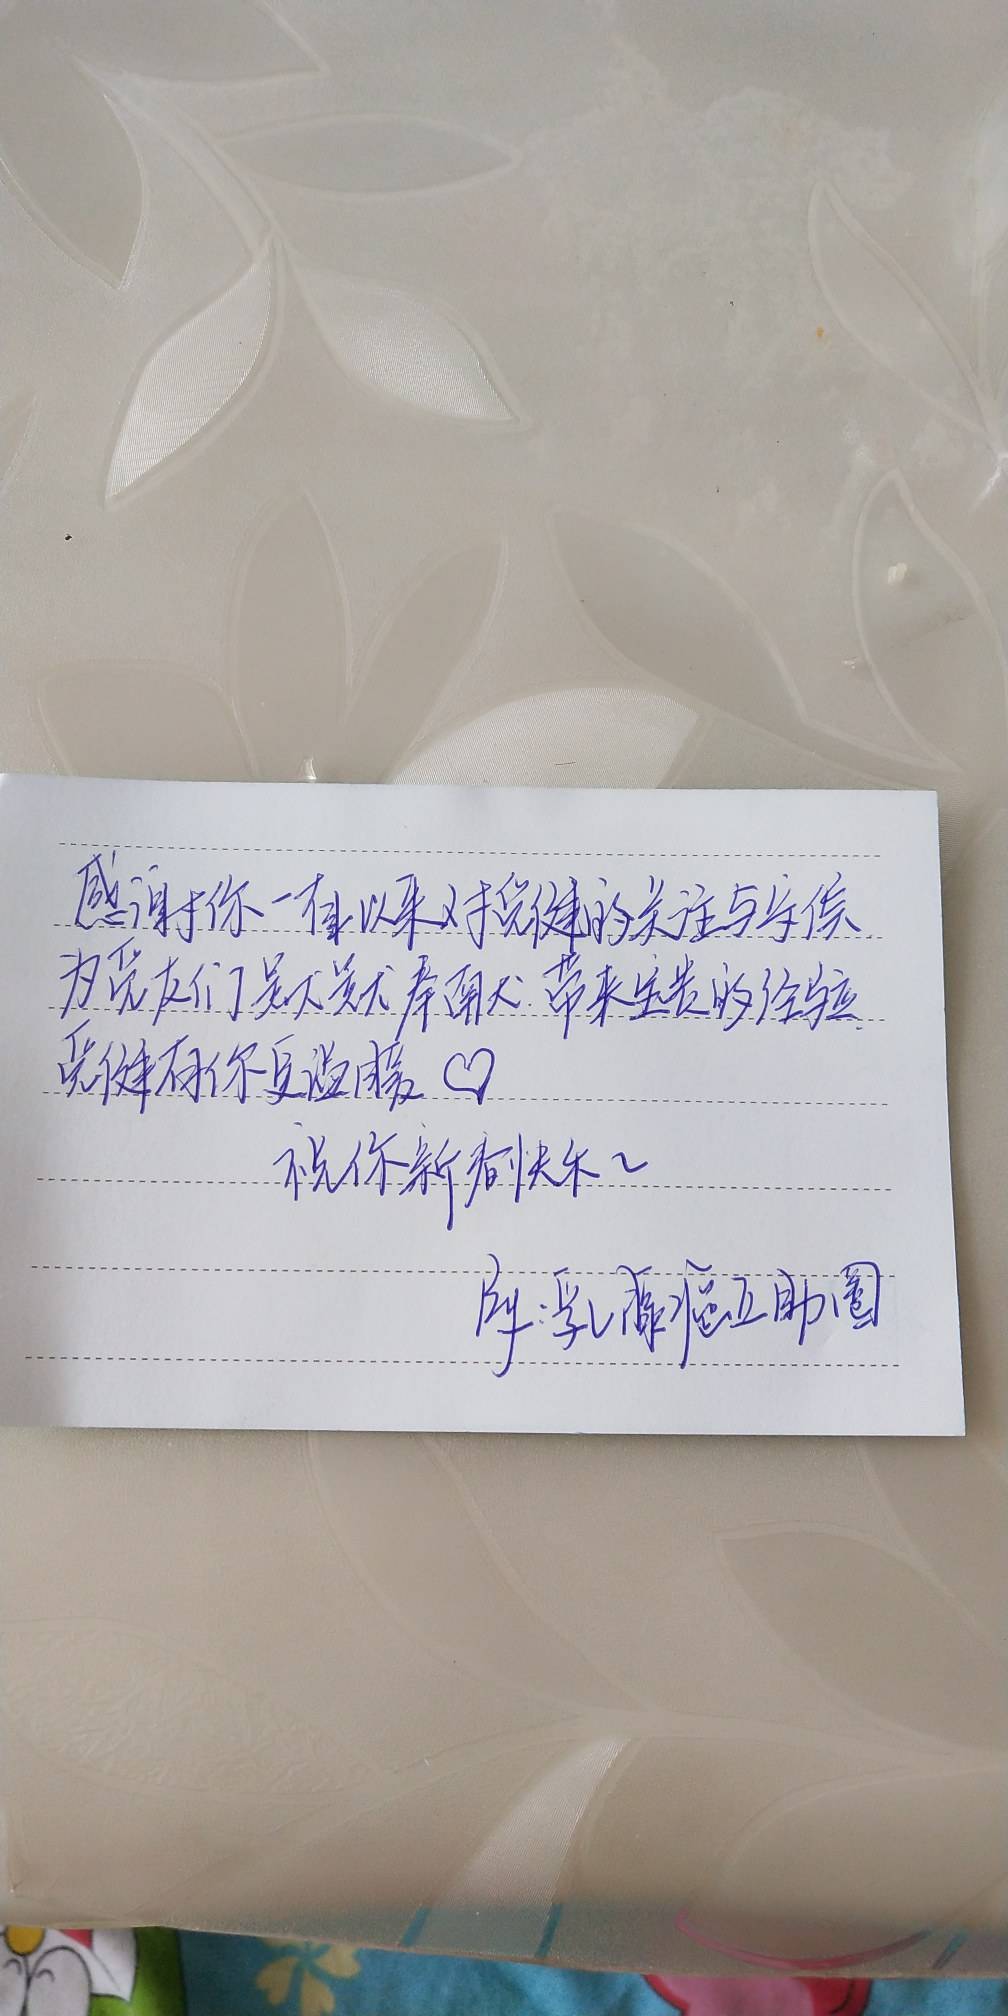 感谢你一直以来对觅健的关注与守候
为觅友们默默奉献.带来宝贵的经验
觅健有你更温暖♡
祝你新春快乐~
附:乳腺癌互助圈